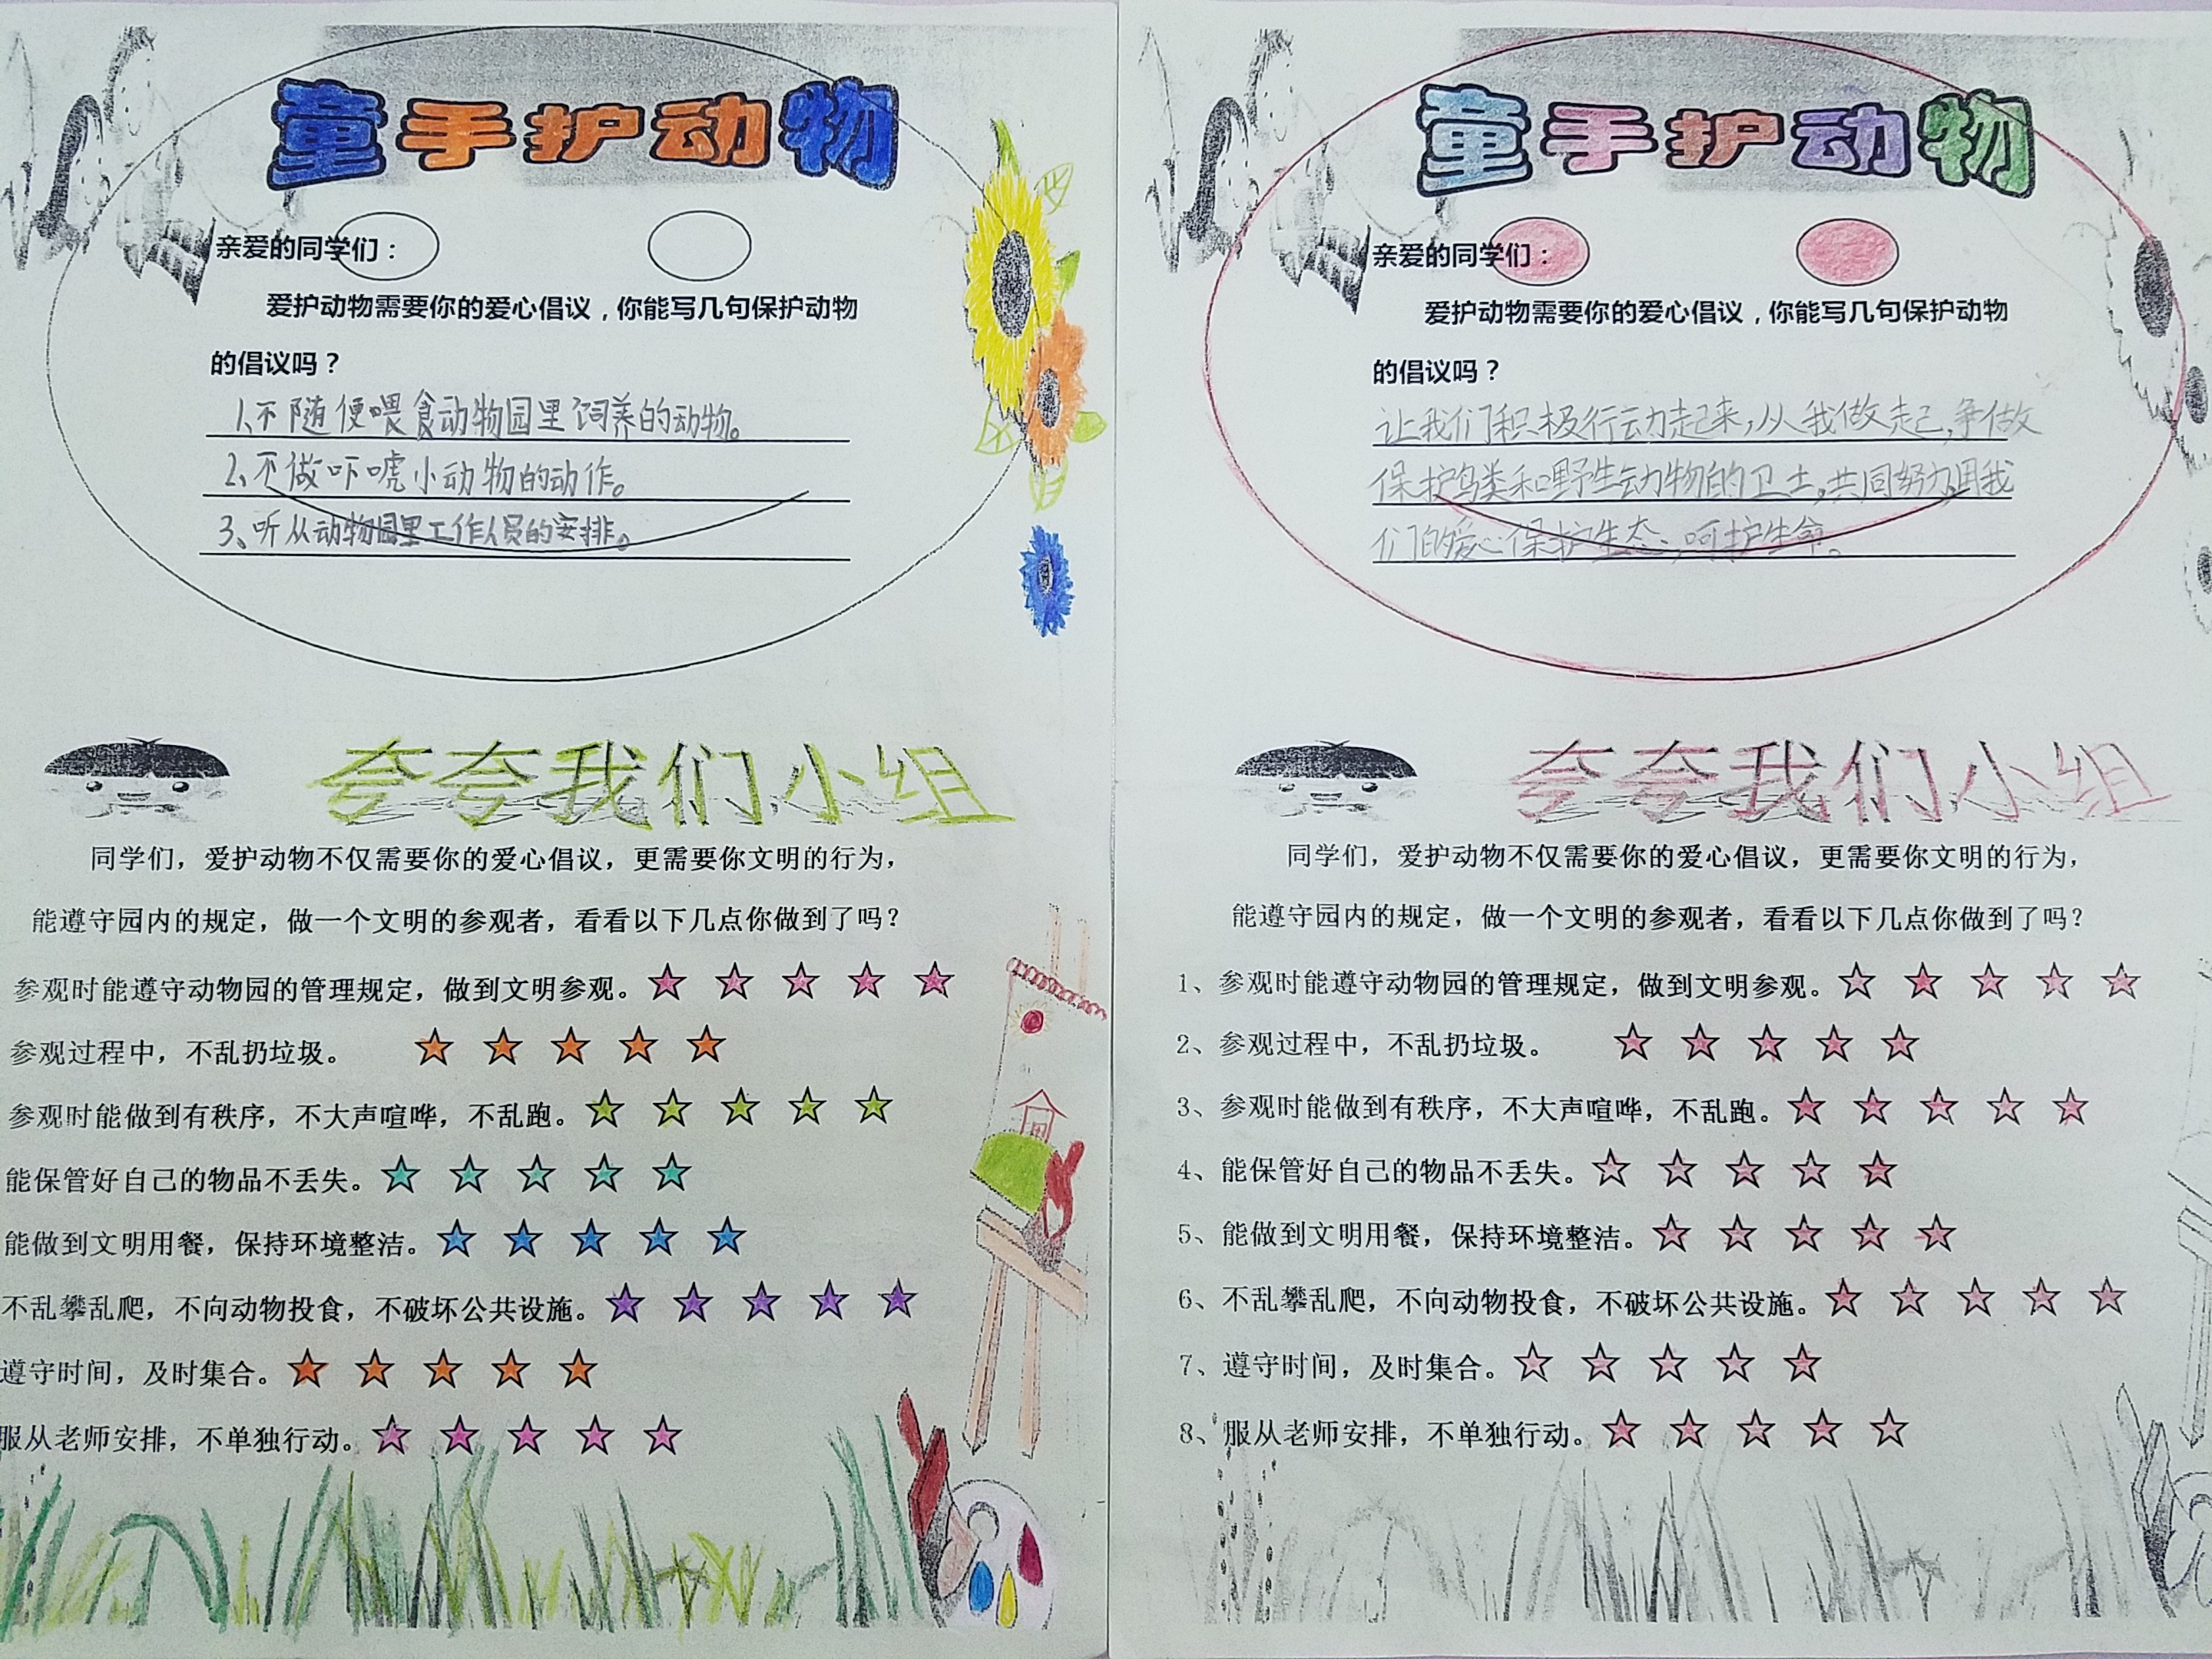 童手护动物
亲爱的同学们：
爱护动物需要你的爱心倡议，你能写几句保护动物
的倡议吗？
1、不随便喂食动物园里饲养的动物。
2、不做吓唬小动物的动作。
3、听从动物园里工作人员的安排。
夸夸我们小组
同学们，爱护动物不仅需要你的爱心倡议，更需要你文明的行为，
能遵守园内的规定，做一个文明的参观者，看看以下几点你做到了吗？
参观时能遵守动物园的管理规定，做到文明参观。☆ ☆ ☆ ☆ ☆
参观过程中，不乱扔垃圾。 ☆ ☆ ☆ ☆ ☆
参观时能做到有秩序，不大声喧哗，不乱跑。☆ ☆ ☆ ☆ ☆
能保管好自己的物品不丢失。☆ ☆ ☆ ☆ ☆
能做到文明用餐，保持环境整洁。☆ ☆ ☆ ☆ ☆
不乱攀乱爬，不向动物投食，不破坏公共设施。☆ ☆ ☆ ☆ ☆
遵守时间，及时集合。☆ ☆ ☆ ☆ ☆
服从老师安排，不单独行动。☆ ☆ ☆ ☆ ☆
童手护动物
亲爱的同学们：
爱护动物需要你的爱心倡议，你能写几句保护动物
的倡议吗？
让我们积极行动起来，从我做起，争做
保护鸟类和野生动物的卫士，共同努力用我
们的爱心保护生态，呵护生命。
夸夸我们小组
同学们，爱护动物不仅需要你的爱心倡议，更需要你文明的行为，
能遵守园内的规定，做一个文明的参观者，看看以下几点你做到了吗？
1、参观时能遵守动物园的管理规定，做到文明参观。☆ ☆ ☆ ☆ ☆
2、参观过程中，不乱扔垃圾。 ☆ ☆ ☆ ☆ ☆
3、参观时能做到有秩序，不大声喧哗，不乱跑。☆ ☆ ☆ ☆ ☆
4、能保管好自己的物品不丢失。☆ ☆ ☆ ☆ ☆
5、能做到文明用餐，保持环境整洁。☆ ☆ ☆ ☆ ☆
6、不乱攀乱爬，不向动物投食，不破坏公共设施。☆ ☆ ☆ ☆ ☆
7、遵守时间，及时集合。☆ ☆ ☆ ☆ ☆
8、服从老师安排，不单独行动。☆ ☆ ☆ ☆ ☆